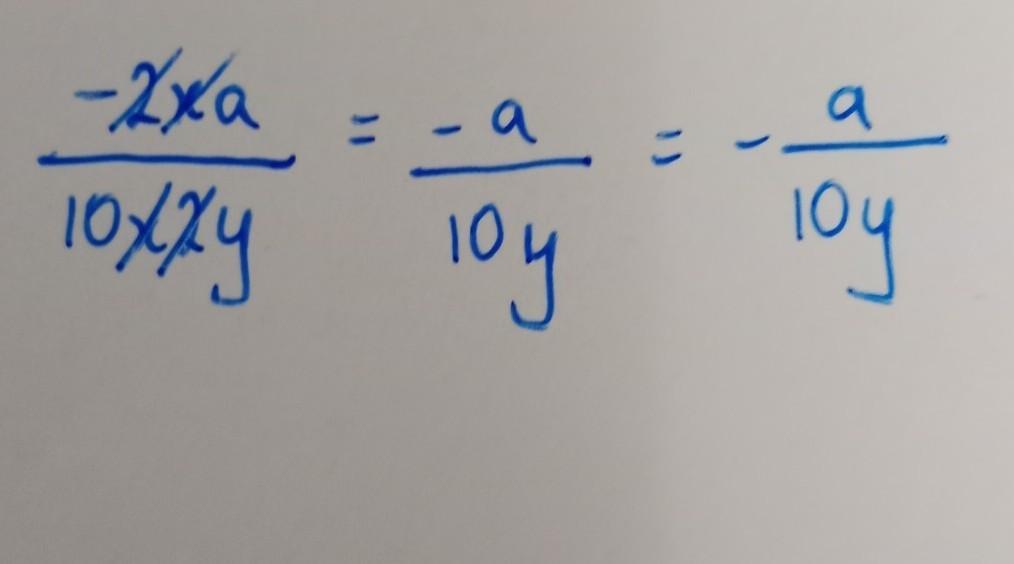 -2xa/10x2y = -a/10y = -a/10y